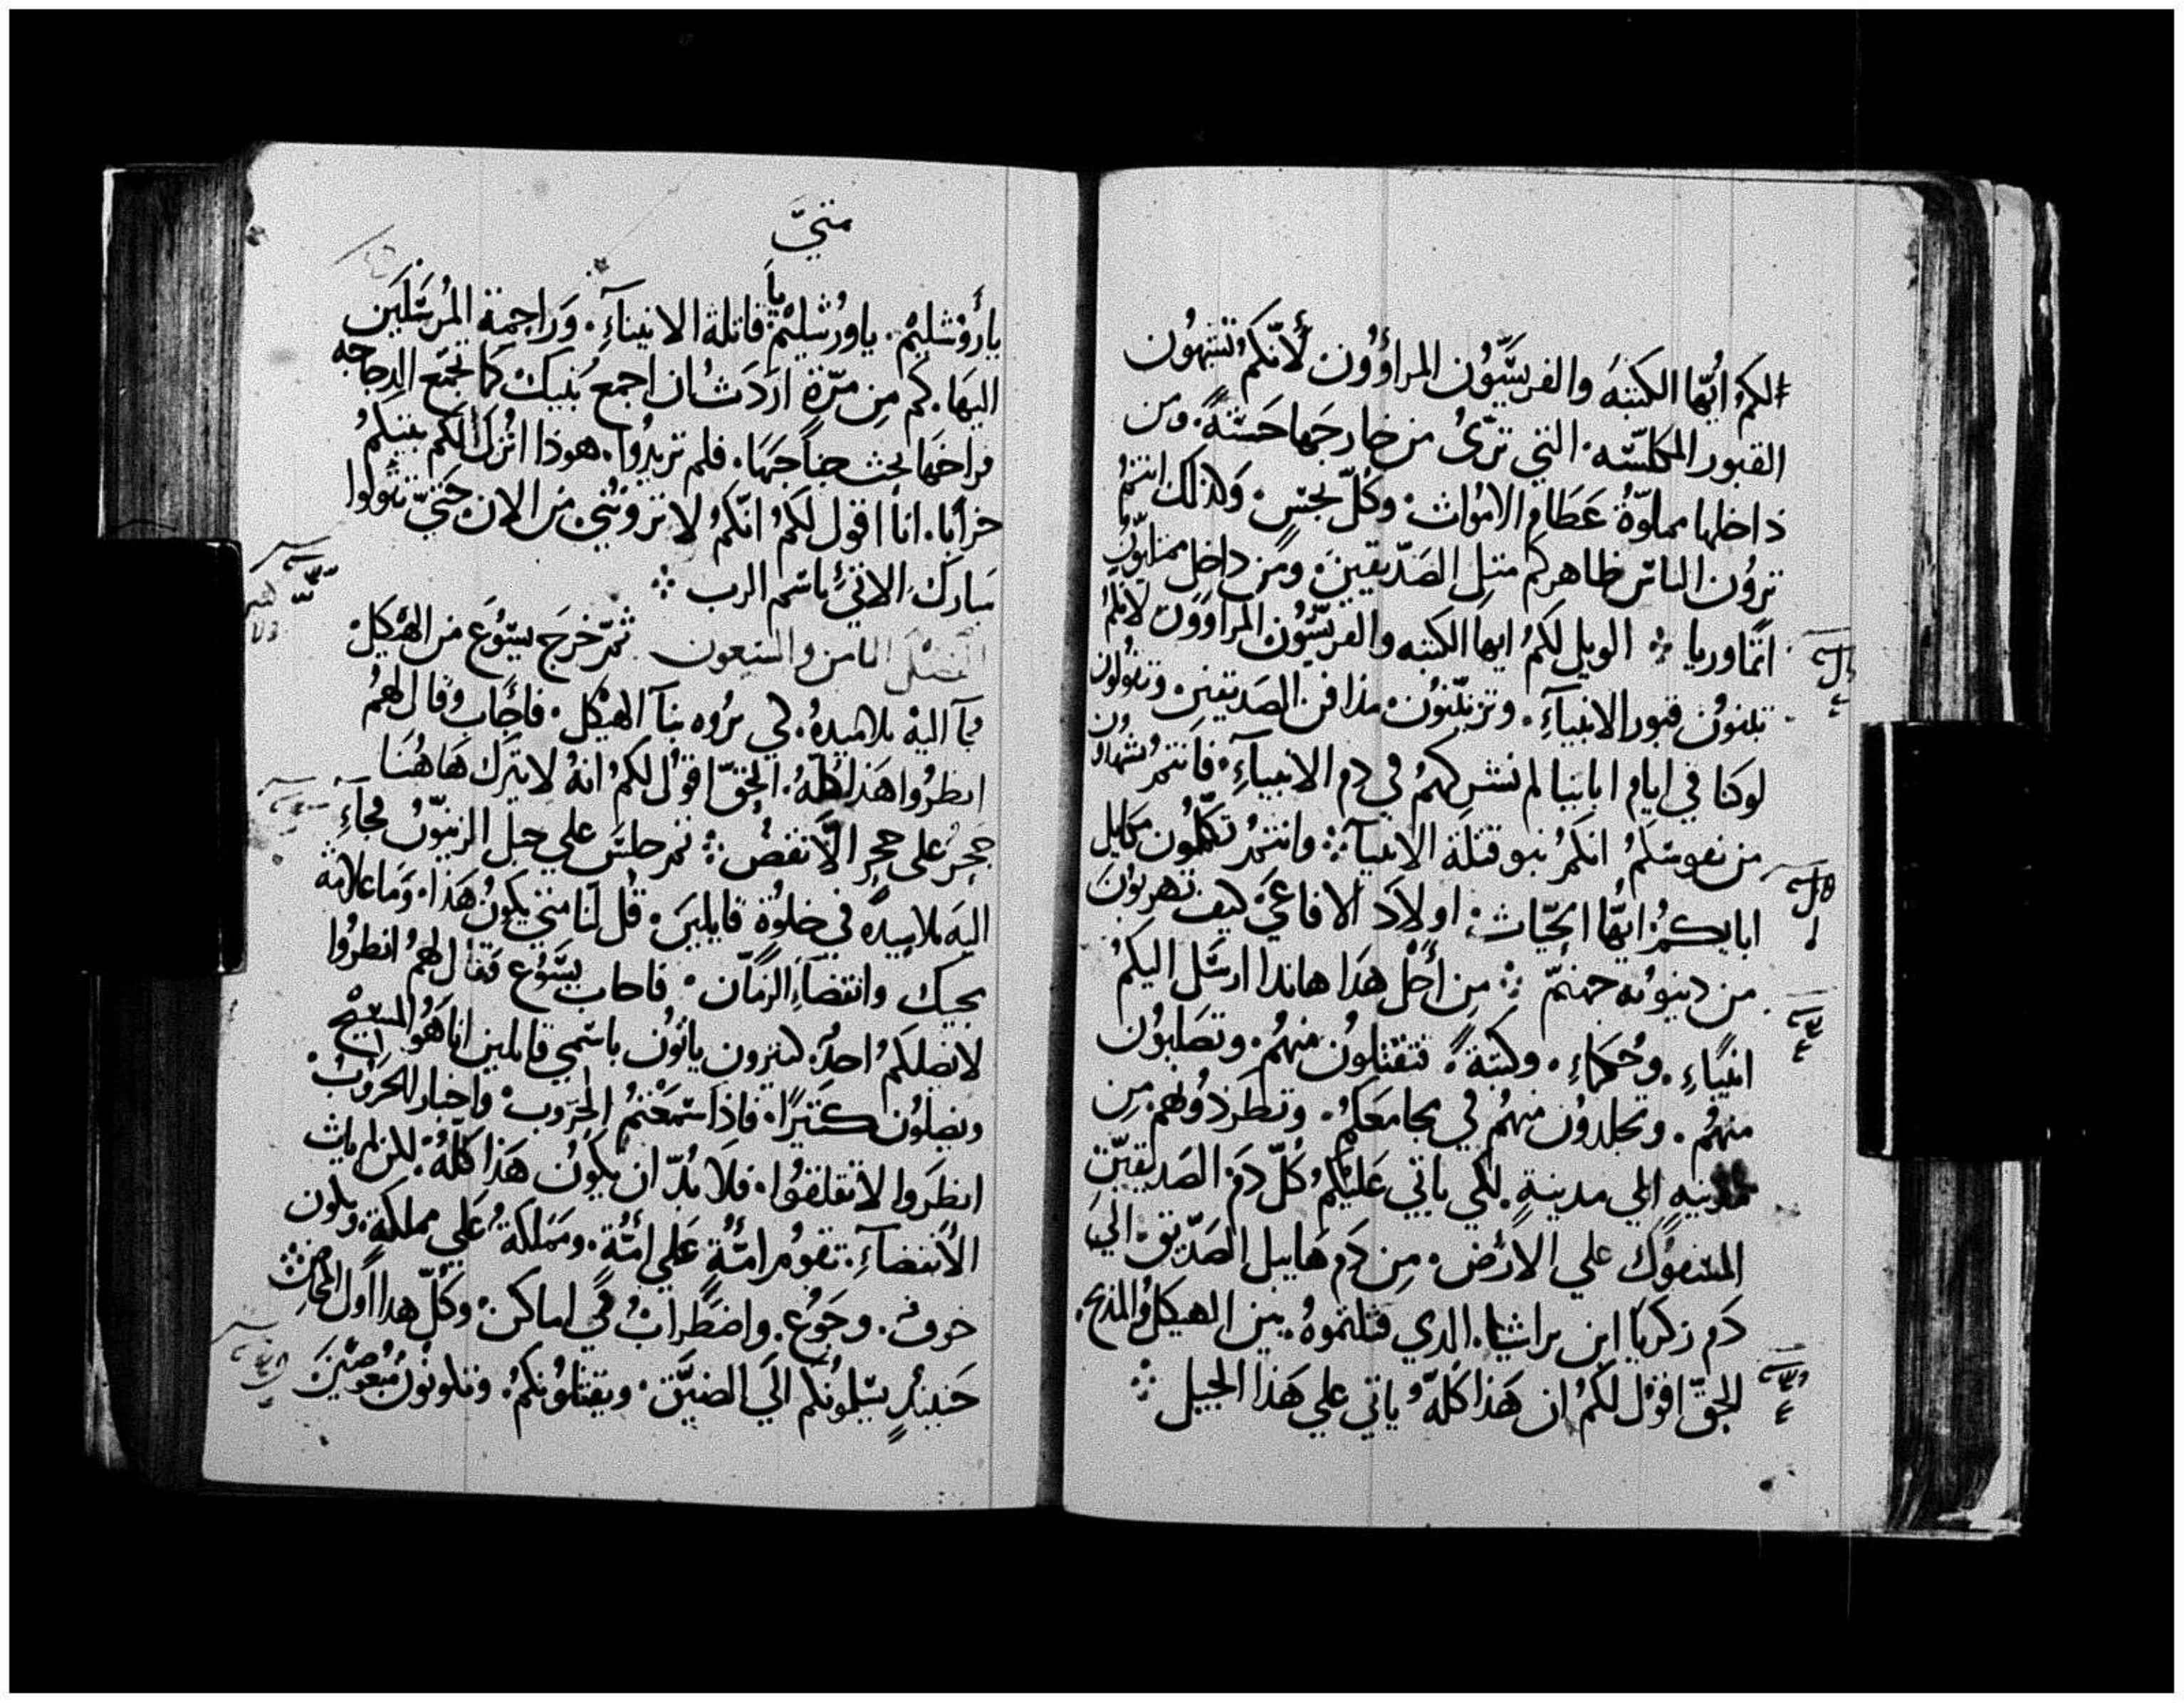 لكمُ ايُّها الكتبَه والفريسَّيُون المرأوُون لأنّكمُ تشبهُون
القبور المكلسّه. التي ترَىُ من خارجَها حَسَنةً. ومن
داخلها مملوّةُ عَظام الامُواث. وكُلّ نجسٍ. وَلذلك انتمُ
ترؤن الناس ظاهركم متل الصَدّيقين. ومن داخل ممتليُون
اثمًا وريا ܀ الويل لكمُ ايها الكتبه والفريسّيُون المرأوُون لانكمُ
تبنوُن قبور الانبيآءِ. وتزيّنوُن مدافن الصَديقين. وتقوُلون
لو كنا في ايام ابائنا لم نشركهمُ في دم الانبيآءِ. فانتمُ تشهدُون
من نفوسَكمُ انكمُ بنو قتلة الانبيآءِ ܀ وانتمُ تكمّلُون مكاييل
ابايكمُ ايُّها الحيّاث. اولاَد الافاعَي كيف تهربوُن
من دينوُنه جهنمّ ܀ مِن أَجْل هذَا هاندا ارسَل اليكمُ
انبيَاءِ. وحُكماءِ. وكتبةً. فتقتلوُن منهمُ. وتصَلبوُن
منهمُ. وتجلدوُن منهمُ في مجامعَكمُ. وتطردوُنهم من
مدينهِ الي مدينةٍ. لكي ياتي عَليكمُ كلّ دَم الصَديقيّن
المسَفوُك علي الارض. مِن دَم هَابيل الصَدّيق الي
دَم زكريا ابن براشيا. الدي قتلتموهُ بين الهيكل والمذبح.
الحقّ اقوُل لكمُ ان هَذا كلّهُ ياتي علي هَذا الجيل ܀
متيَّ
يأرُوُشليمْ. ياورُشليمْ يا قاتلة الانبيآءِ. وَراجمة المُرسَلين
اليهَا. كم مِن مرّة اردَثُ ان اجمعَ بَنيك كما تجمّع الدجاجه
فراخهَا تحث جناحَهَا. فلم تريدُوا. هوذا اترُك لكم بيتكمُ
خرابًا. انا اقول لكمُ انّكمُ لا ترونني من الان حَتيّ تقولوا
مبَارك الاتيُ باسَم الرب ܀
الفصْل الثامن والتسعون ثمّ خرَج يسَّوُع من الهيكل
فجآ اليهْ تلاميدهُ. لكي يرُوه بنآ الهيكل. فاجَاب وقال لهمُ
انظرُوا هَذا كلّهُ. الحقّ اقوُل لكمُ انهُ لا يترك هَاهُنا
حَجرُ علي حجرٍ الاَّ نقض ܀ ثمر جلسَ علي جبل الزيتوُن فجآءِ
اليه تلاميدهُ في خلوُة قايلينَ. قُل لنا متي يكونُ هَذا. وَما علامة
مجيك وانقضآءِ الزمَان. فاجاب يسَّوُع فقال لهمُ انظرُوا
لا يضلكمُ احدُ. كثيرون ياتوُن باسَمي قايلين انا هَوُ المسَيح
ويضلوُن كتيرًا. فاذا سَمعَتمُ الحرَوب. واخبار الحَروُبْ
انظروا لا تقلقوُا. فلاَ بُدّ ان يكوُن هَذا كلّهُ. لكن لم ياث
الانقضآءِ. تقومر امّةُ عَلي امّة. ومَملكةُ عَلي مملكةٍ. ويكون
خوف. وجَوُع. واضطَرابُ في اماكن. وكُلّ هدا اول المخاض
حَينيذٍ يسَلموُنكم اليَ الضيَّق. ويقتلوُنكمُ. وتكونوُن مُبغَوضيَن